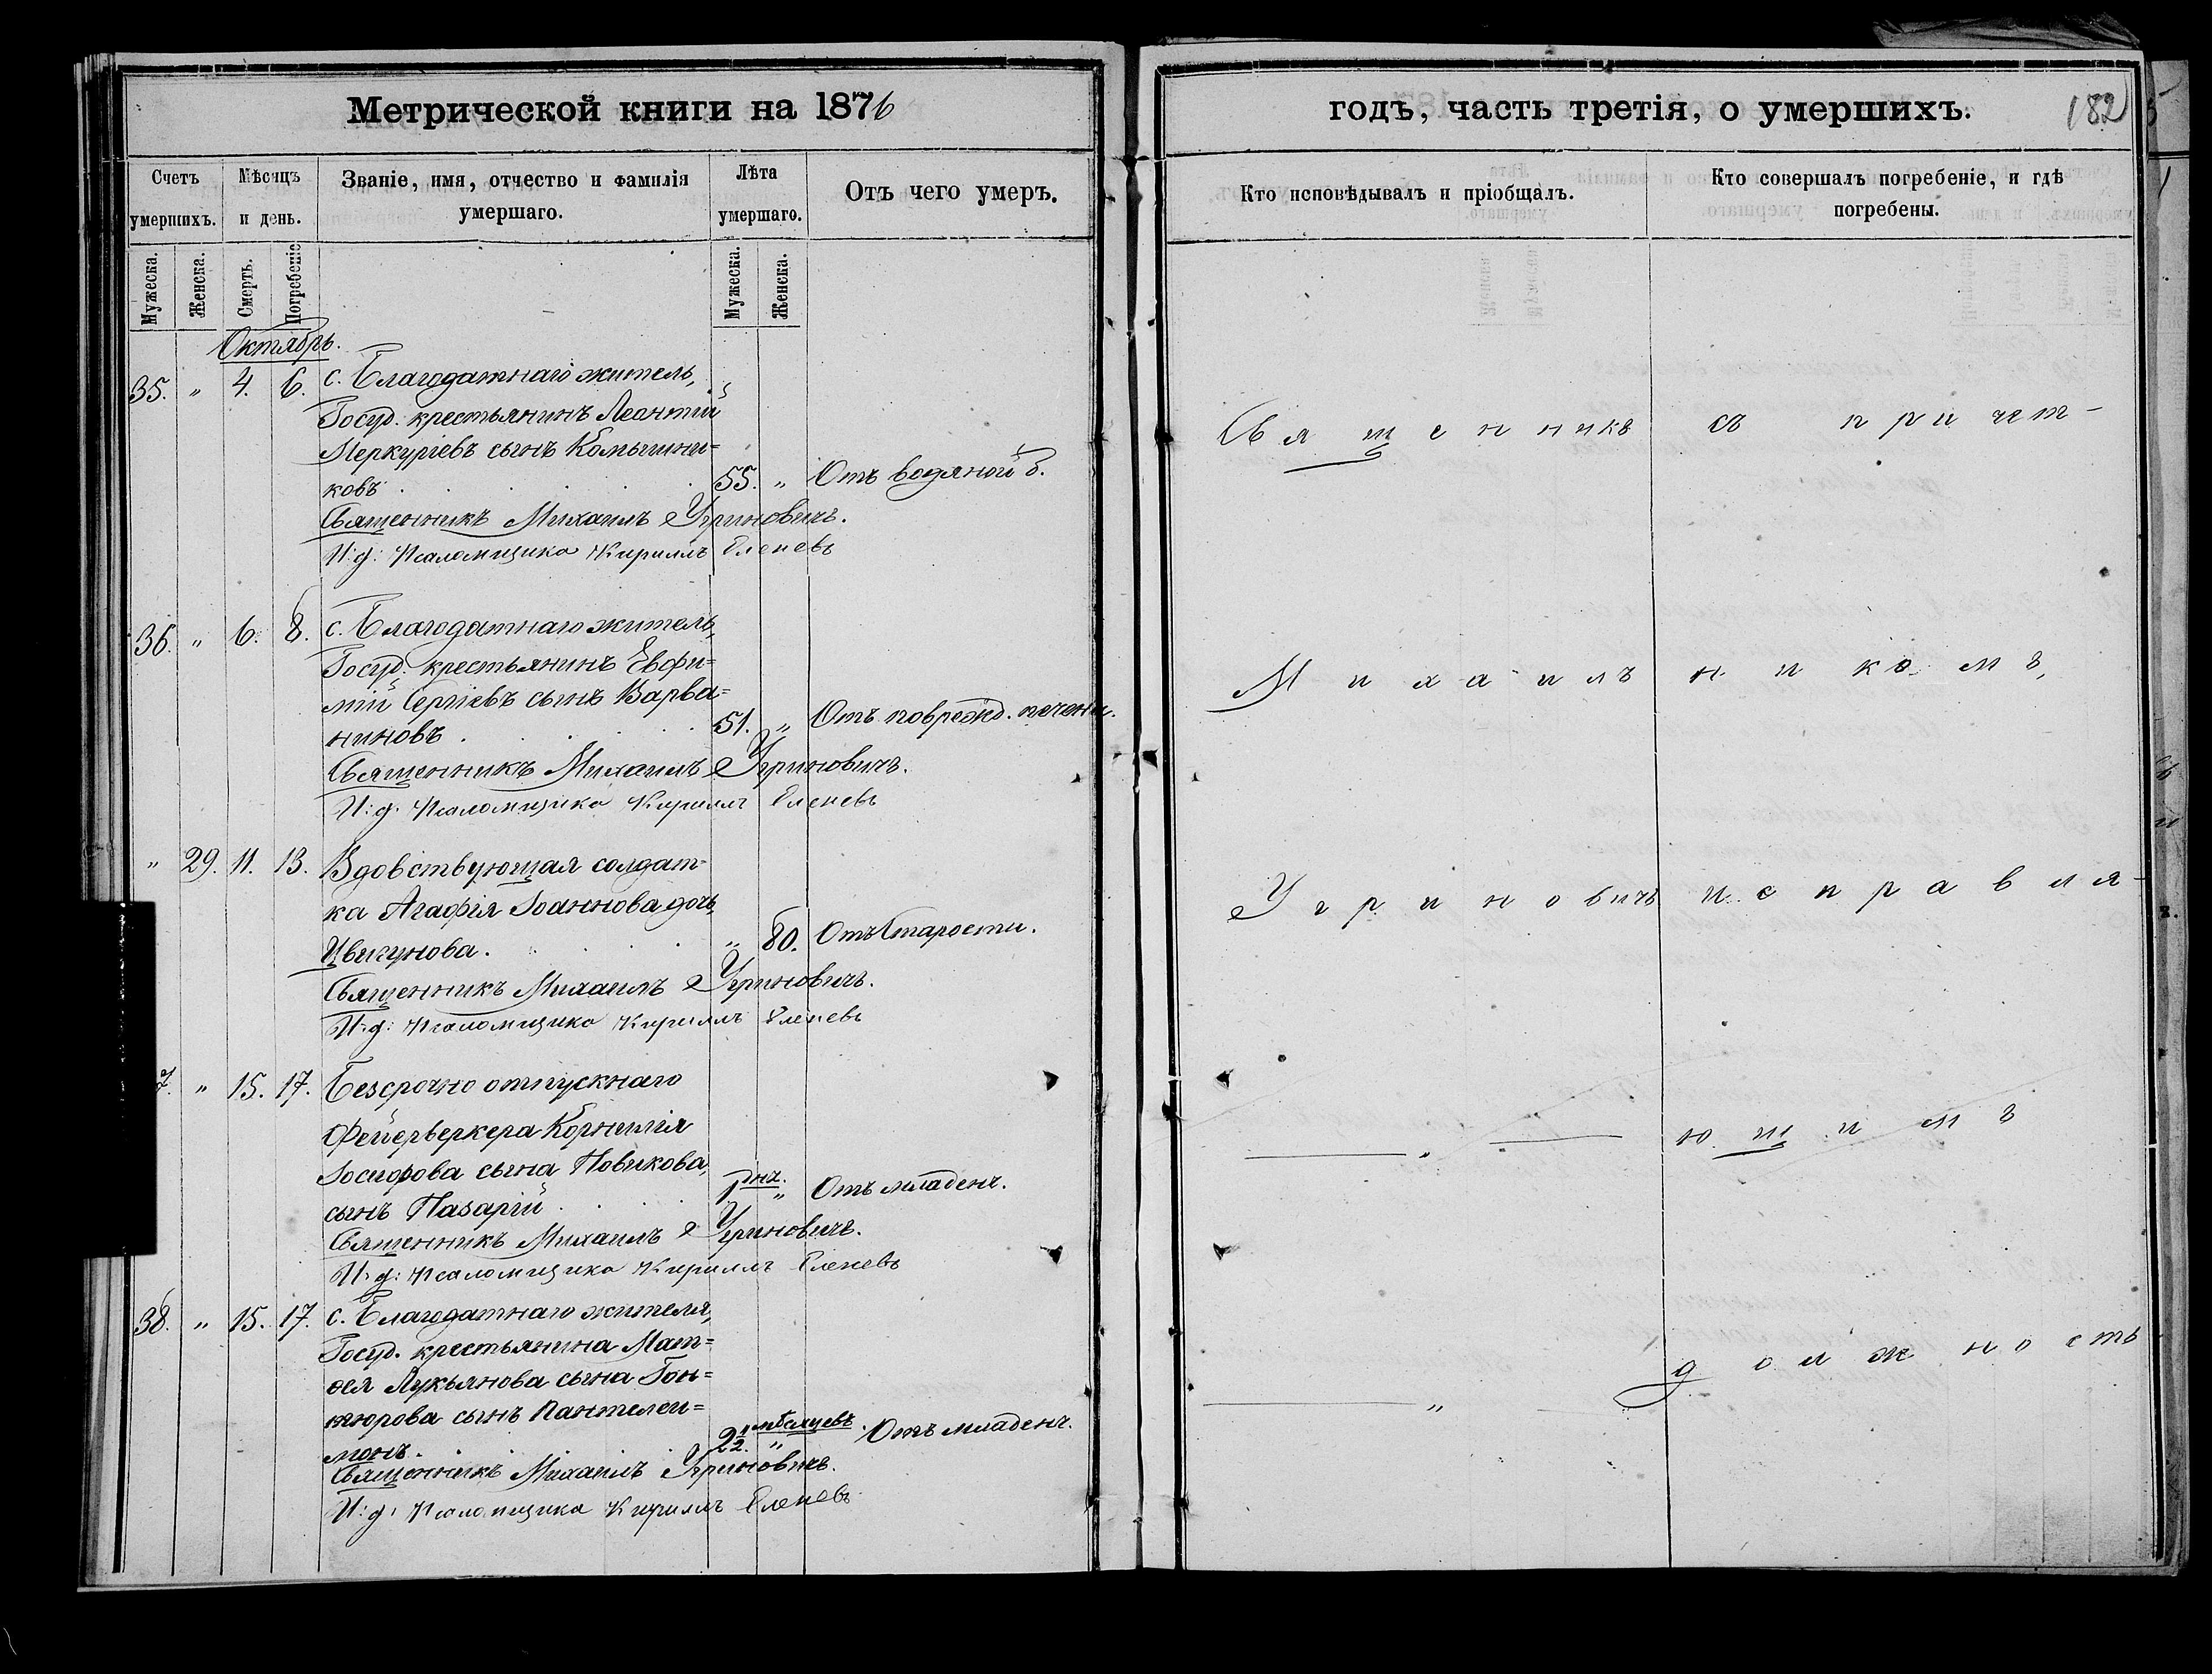 Метрической книги на 1876
Счетъ умершихъ.
Мѣсяцъ и день.
Званіе, имя, отчество и фамилія умершаго.
Лѣта умершаго.
Отъ чего умеръ.
Мужеска.
Женска.
Смерть.
Погребеніе
Мужеска.
Женска.
Октябрь.
35. " 4. 6. с. Благодатнаго житель,
Госуд. крестьянинъ Леонтій
Меркуріевъ сынъ Камышни=
ковъ 55. " Отъ водяной б.
Священникъ Михаилъ Угриновичъ.
И: д: Псаломщика Кириллъ Еленевъ
36. " 6. 8. с. Благодатнаго житель,
Госуд. крестьянинъ Евфи=
мій Сергіевъ сынъ Варва=
ниновъ 51. " Отъ поврежд. печени.
Священникъ Михаилъ Угриновичъ.
И: д. Псаломщика Кириллъ Еленевъ
" 29. 11. 13. Вдовствующая солдат=
ка Агафія Іоаннова дочь,
Цвигунова. " 80. Отъ Старости.
Священникъ Михаилъ Угриновичъ.
И: д: Псаломщика Кириллъ Еленевъ
7. " 15. 17. Безсрочно отпускнаго
Фейерверкера Корнилія
Іосифова сына Новикова,
сынъ Назарій " Отъ младенч.
Священникъ Михаилъ Угриновичъ.
И: д: Псаломщика Кириллъ Еленевъ
38. " 15. 17. с. Благодатнаго жителя,
Госуд. крестьянина Мат=
ѳея Лукьянова сына Гон=
тюрова сынъ Пантелеи=
монъ. 2½ мѣсяцевъ " Отъ младенч.
Священникъ Михаилъ Угриновичъ.
И: д: Псаломщика Кириллъ Еленевъ
годъ, часть третія, о умершихъ. 182
Кто исповѣдывалъ и пріобщалъ.
Кто совершалъ погребеніе, и гдѣ погребены.
Священникъ съ причет-
Михаилъ никомъ,
Угриновичъ исправля-
" ющимъ
" должность